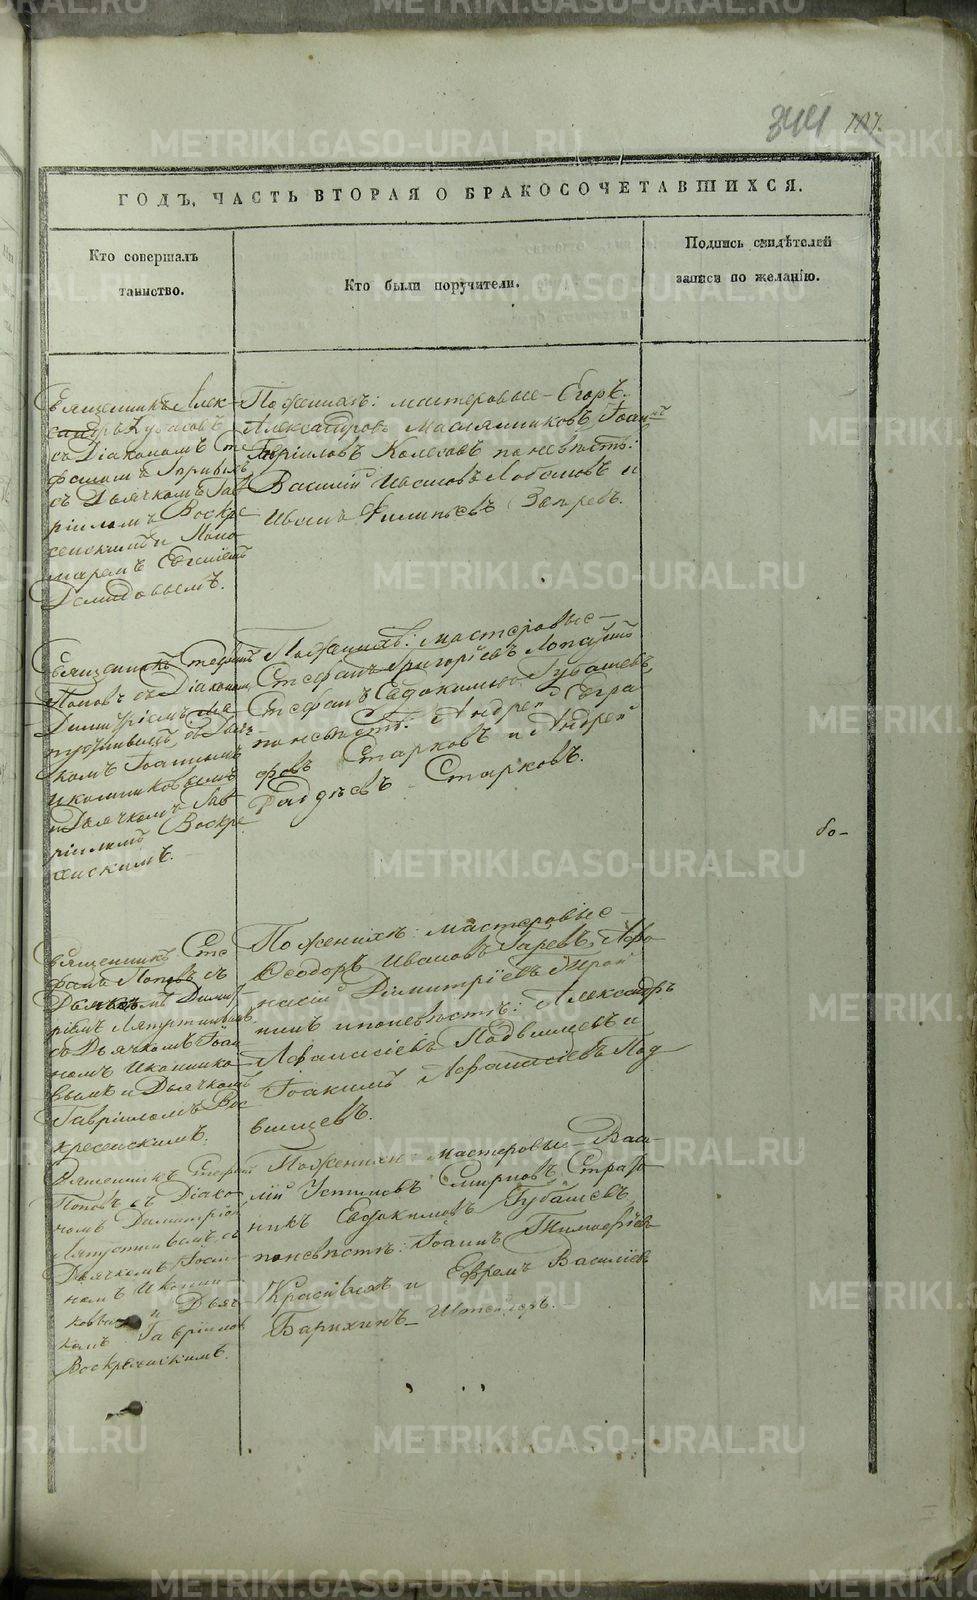 344 107.
ГОДЪ, ЧАСТЬ ВТОРАЯ О БРАКОСОЧЕТАВШИХСЯ.
Кто совершалъ
таинство.
Кто были поручители.
Подпись свидѣтелей
записи по желанію.
Священникъ Алек-
сандръ
съ Діакономъ Сте
фаномъ
съ Дьячкомъ Гав
ріиломъ Воскре
сенскимъ и Поно
маремъ Евгеніемъ
Демидовымъ.
По женихѣ: мастеровые Егоръ
Александровъ Масляниковъ, Іоаннъ
Гавріиловъ Колесовъ по невѣстѣ:
Василій Ивановъ Лобановъ и
Иванъ Филипьевъ
Священникъ Стефанъ
Поповъ съ Діакономъ
Димитріемъ Ля
пустинымъ, съ Дьяч
комъ Іоанномъ
Иконниковымъ
и Дьячкомъ Гав
ріиломъ Воскре
сенскимъ.
По женихѣ: мастеровые
Стефанъ Григорьевъ
Стефанъ Евдокимовъ Губашевъ,
по невѣстѣ: Андрей Егра
фовъ Старковъ и Андрей
Фаддѣевъ Старковъ.
бо-
Священникъ Сте
фанъ Поповъ съ
Димит
ріемъ Ляпустинымъ
съ Дьячкомъ Іоан
номъ Иконнико
вымъ и Дьячкомъ
Гавріиломъ Вос
кресенскимъ.
По женихѣ: мастеровые
Ѳеодоръ Ивановъ Афо
насій Димитріевъ
и по невѣстѣ: Александръ
Афанасіевъ Подвинцевъ и
Іоакимъ Афанасіевъ Под
винцевъ.
Священникъ Стефанъ
Поповъ съ Діако
номъ Димитріемъ
Ляпустинымъ, съ
Дьячкомъ Іоан
номъ Иконни
ковымъ и Дьяч
комъ Гавріиломъ
Воскресенскимъ.
По женихѣ: мастеровые Васи
лій Устиновъ Смирновъ, Страто
никъ Евдокимовъ Губашевъ,
по невѣстѣ: Іоаннъ Тимофѣевъ
Красивыхъ и Ефремъ Василіевъ
METRIKI.GASO-URAL.RU